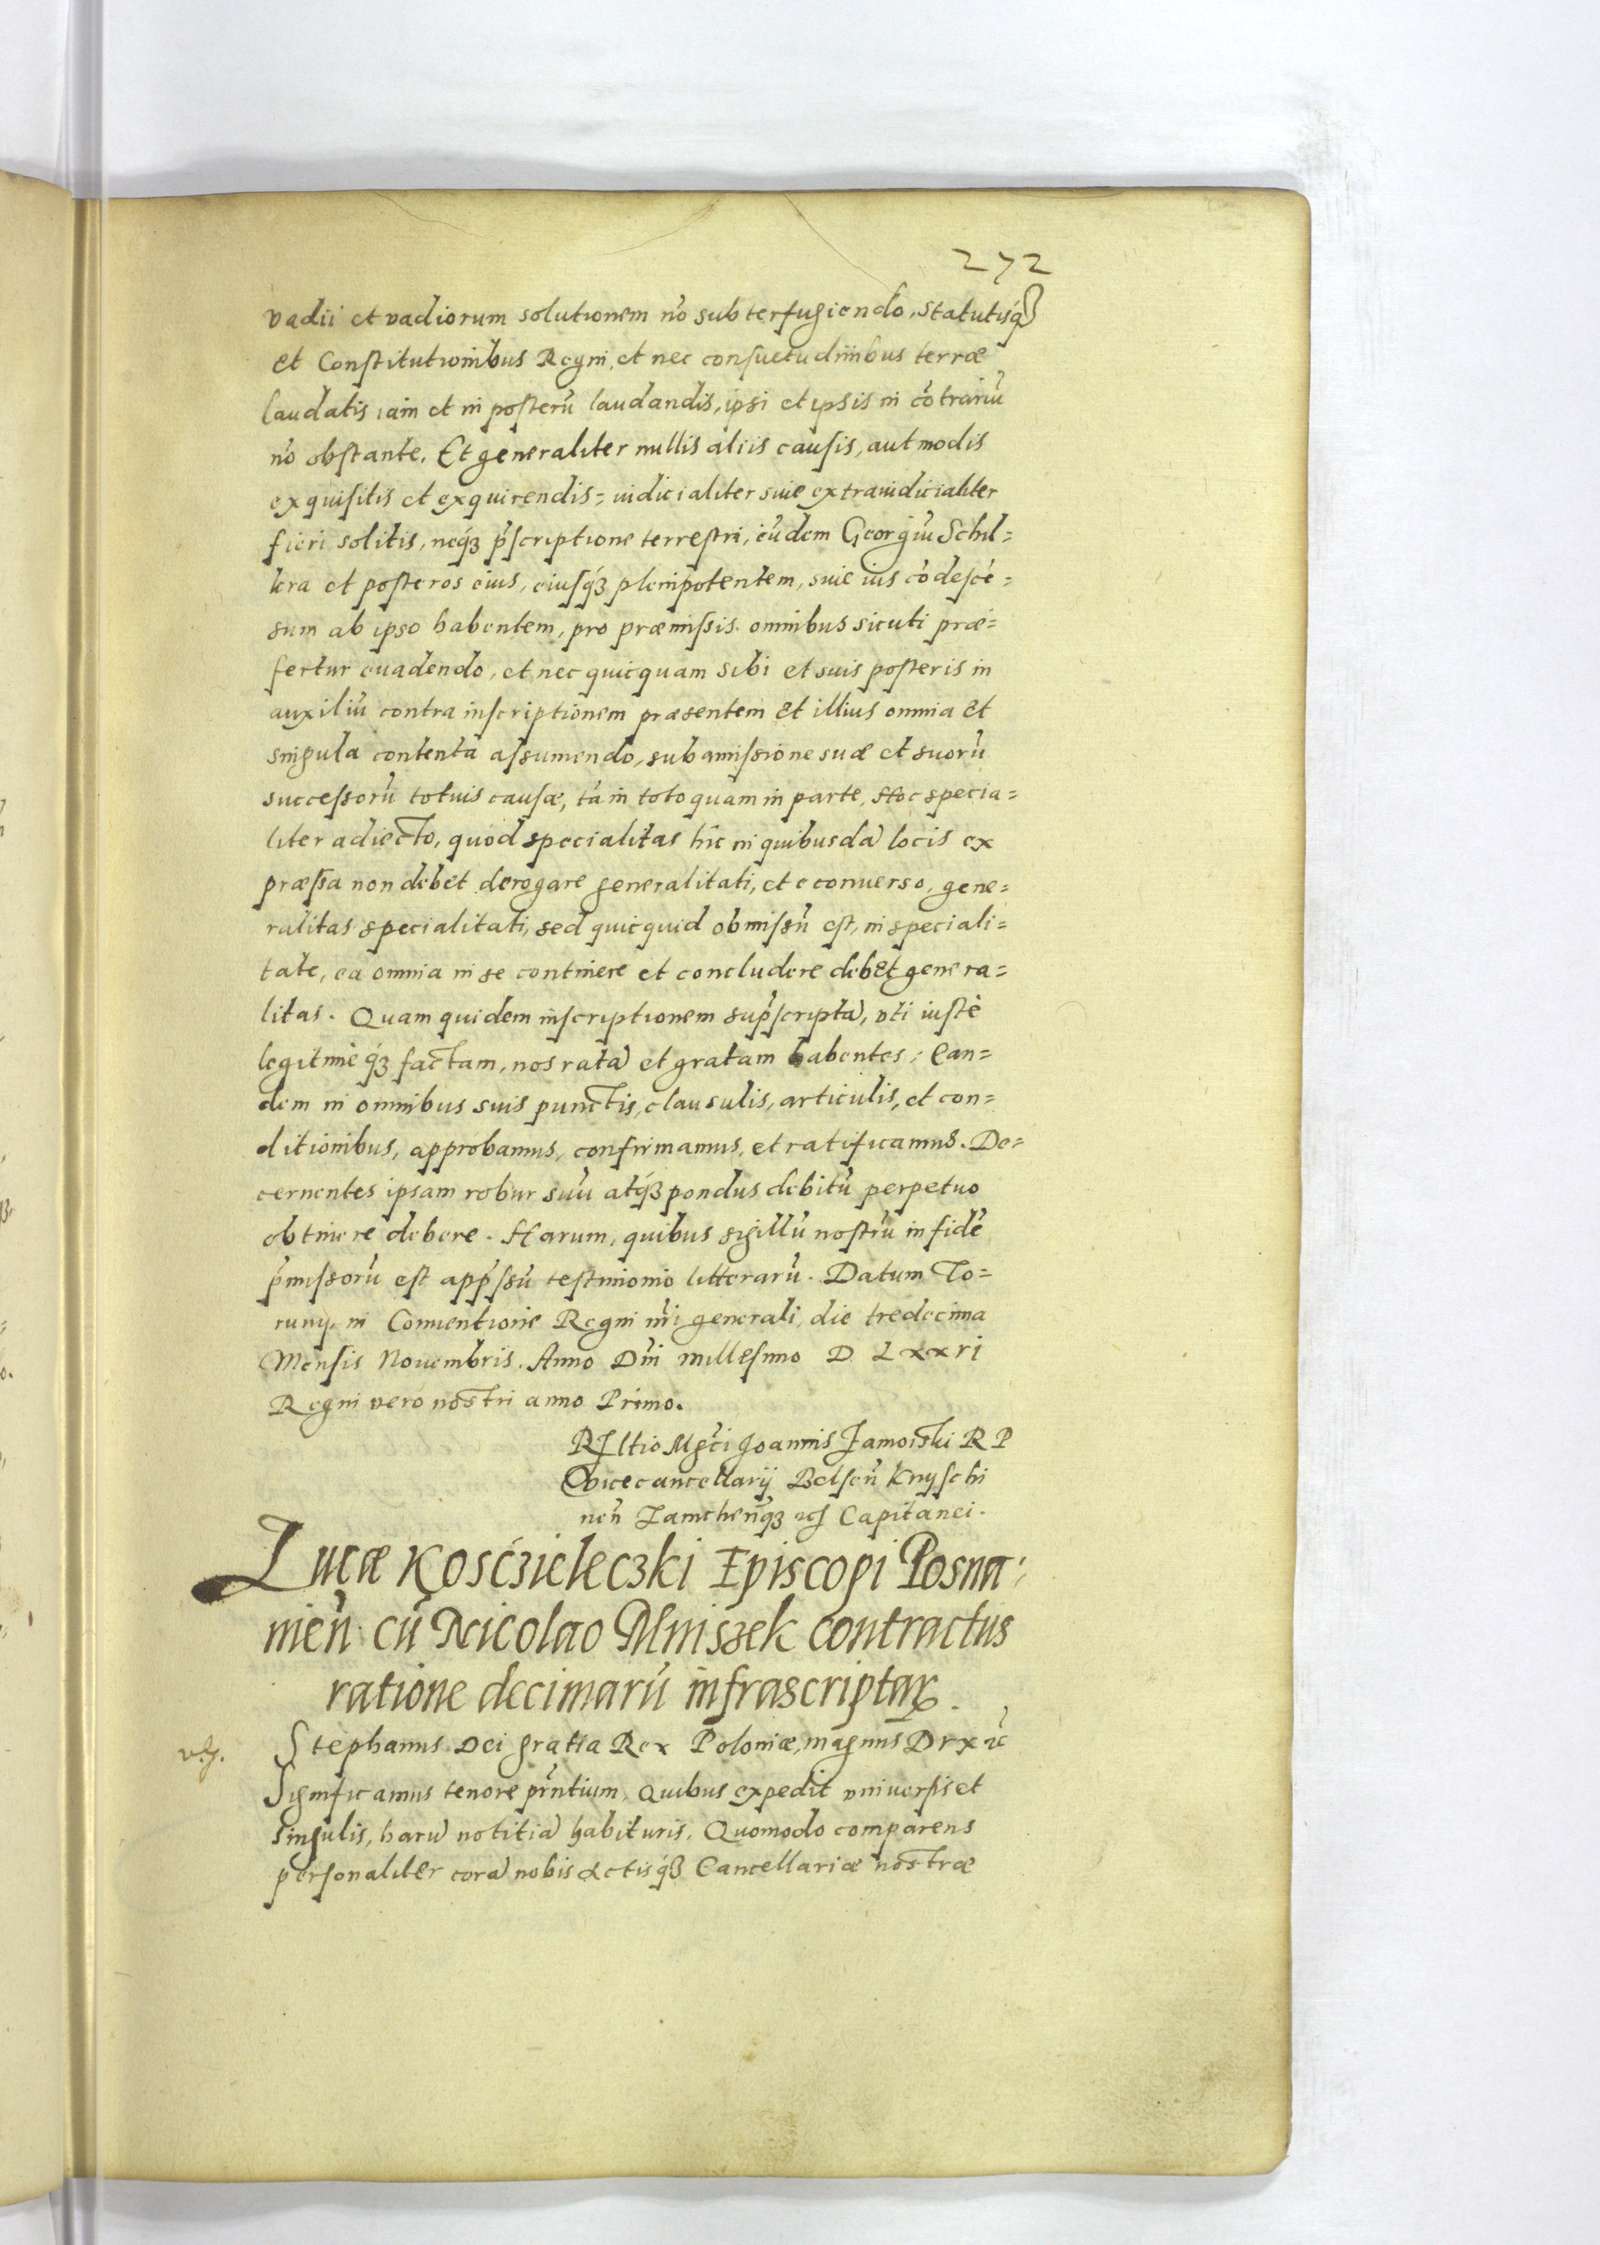 272
vadii et vadiorum solutionem nō subterfugiendo, statutisq́ꝫ
et Constitutionibus Regni, et nec consuetudinibus terræ
laudatis iam et in posterū laudandis, ipsi et ipsis in cōtrariū
nō obstante. Et generaliter nullis aliis causis, aut modis
exquisitis et exquirendis, iudicialiter siue extraiudicialiter
fieri solitis, neq́ꝫ p̄scriptione terrestri, eūdem Georgiū Schil=
lera et posteros eius, eiusq́ꝫ plenipotentem, siue ius cōdescē=
sum ab ipso habentem, pro præmissis omnibus sicuti præ=
fertur euadendo, et nec quicquam sibi et suis posteris in
auxiliū contra inscriptionem præsentem et illius omnia et
singula contenta assumendo, sub amissione suæ et suorū
successorū totius causæ, tā in toto quam in parte. Hoc specia=
liter adiecto, quod specialitas hic in quibusdā locis ex
præssa non debet derogare generalitati, et e conuerso, gene=
ralitas specialitati, sed quicquid obmissū est, in speciali=
tate, ea omnia in se continere et concludere debet genera=
litas. Quam quidem inscriptionem sup̄scriptā, vti iustè
legitimè q́ꝫ factam, nos ratā et gratam habentes, Ean=
dem in omnibus suis punctis, clausulis, articulis, et con=
ditionibus, approbamus, confirmamus, et ratificamus. De=
cernentes ipsam robur suū atq́ꝫ pondus debitū perpetuo
obtinere debere. Harum, quibus sigillū nostrū in fidē
p̄missorū est app̄ssū testimonio litterarū. Datum To=
runij, in Conuentione Regni nr̄i generali, die tredecima
Mensis Nouembris. Anno Dn̄i millesimo D LXXVI
Regni vero nostri anno Primo.
Rltio Mgci Joannis Zamoiski R P
Vicecancellarij Belsen̄ Knyschi
nen̄ Zamchen̄q́ꝫ Capitanei.
Lucæ Kośczieleczki Episcopi Posna=
nien̄ cū Nicolao Mniszek contractus
ratione decimarū infrascriptaꝝ.
Stephanus Dei gratia Rex Poloniæ, magnus Dvx
Significamus tenore pn̄tium, Quibus expedit vniuersis et
singulis, harū notitiā habituris, Quomodo comparens
personaliter corā nobis actisq́ꝫ Cancellariæ nostræ